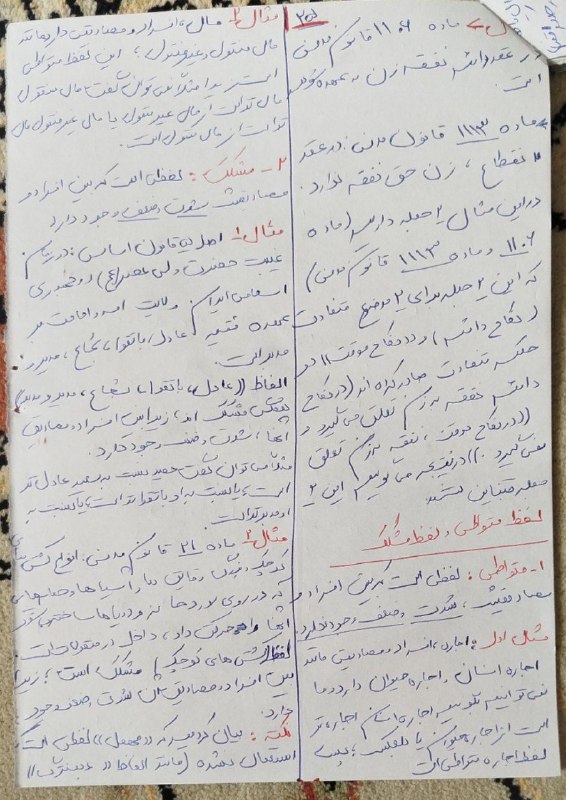 ماده ۱۱۰۶ قانون مدنی
در عقد دائم نفقه زن به عهده شوهر
است.
ماده ۱۱۱۳ قانون مدنی: در عقد
انقطاع، زن حق نفقه ندارد.
در این مثال ۲ جمله داریم (ماده
۱۱۰۶ و ماده ۱۱۱۳ قانون مدنی)
که این ۲ جمله برای ۲ موضوع متفاوت
(نکاح دائم) و (نکاح موقت) دو
حکم متفاوت صادر کرده اند (در نکاح
دائم نفقه به زن تعلق می‌گیرد و
((در نکاح موقت، نفقه به زن تعلق
نمی‌گیرد.)) در نتیجه می‌گوییم این ۲
جمله متباین هستند.
لفظ متواطی و لفظ مشکک
۱- متواطی: لفظی است که بین افراد و
مصادیقش، شدت و ضعف وجود ندارد.
مثال اول: اجاره، افراد و مصادیقی مانند
اجاره انسان، اجاره حیوان دارد و ما
نمی‌توانیم بگوییم اجاره انسان اجاره‌تر
است از اجاره حیوان یا بالعکس؛ پس
لفظ اجاره متواطی است
مثال ۲: مال، افراد و مصادیقی دارد مانند
مال منقول و غیرمنقول؛ این لفظ متواطی
است زیرا مثلاً نمی‌توان گفت مال منقول
مال‌تر است از مال غیرمنقول یا مال غیرمنقول مال
تر است از مال منقول است.
۲- مشکک: لفظی است که بین افراد و
مصادیقش شدت و ضعف وجود دارد
مثال ۱: اصل ۵ قانون اساسی: در زمان
غیبت حضرت ولی عصر (عج) در جمهوری
اسلامی ایران ولایت امر و امامت بر
عهده فقیه عادل، باتقوا، شجاع، مدیر و
مدبر است.
الفاظ ((عادل، باتقوا، شجاع، مدیر و مدبر))
لفظی مشکک اند، زیرا بین افراد و مصادیق
آنها، شدت و ضعف وجود دارد.
مثلاً می‌توان گفت حمید نسبت به سعید عادل‌تر
است، یا نسبت به او باتقواتر است، یا نسبت به
او مدبرتر است.
مثال ۲: ماده ۲۱ قانون مدنی: انواع کشتی های
کوچک و بزرگ و قایق ها و آسیاها و حمام هایی
که در روی رودخانه و دریاها ساخته می‌شود
و می‌توان آنها را حرکت داد، داخل در منقولات است.
لفظ (کشتی های کوچک) مشکک است؛ زیرا
بین افراد و مصادیق آن شدت و ضعف وجود
دارد.
نکته: بیان کردیم که ((مهمل)) لفظی است که
استعمال نشده (مانند الفاظ